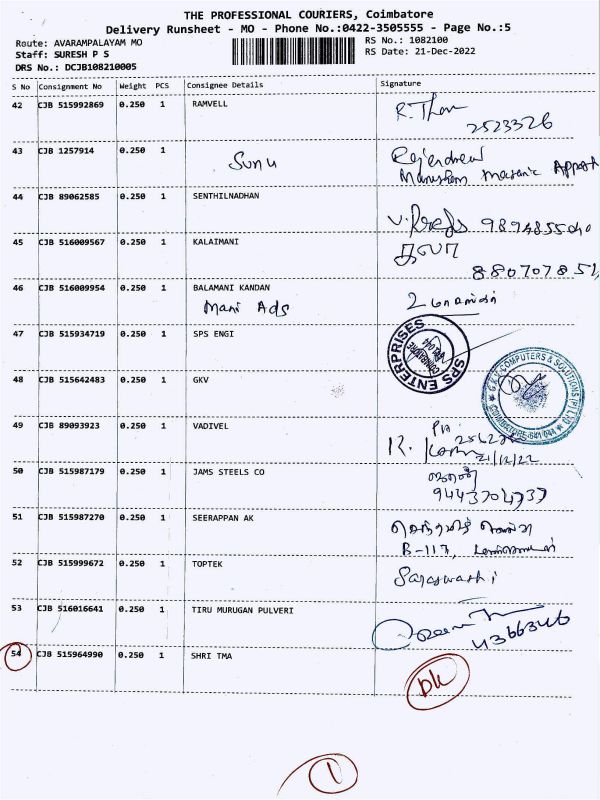 THE PROFESSIONAL COURIERS, Coimbatore
Delivery Runsheet - MO - Phone No.:0422-3505555 - Page No.:5
Route: AVARAMPALAYAM MO
RS No.: 1082100
Staff: SURESH P S
RS Date: 21-Dec-2022
DRS No.: DCJB108210005
S No Consignment No Weight PCS Consignee Details Signature
42 CJB 515992869 0.250 1 RAMVELL
2523326
43 CJB 1257914 0.250 1
44 CJB 89062585 0.250 1 SENTHILNADHAN
45 CJB 516009567 0.250 1 KALAIMANI
46 CJB 516009954 0.250 1 BALAMANI KANDAN
Mani Ads
47 CJB 515934719 0.250 1 SPS ENGI
SPS ENTERPRISES
48 CJB 515642483 0.250 1 GKV
COMPUTERS & SOLUTIONS (P) LTD
49 CJB 89093923 0.250 1 VADIVEL
21/12/22
50 CJB 515987179 0.250 1 JAMS STEELS CO
51 CJB 515987270 0.250 1 SEERAPPAN AK
B-117,
52 CJB 515999672 0.250 1 TOPTEK
53 CJB 516016641 0.250 1 TIRU MURUGAN PULVERI
4366346
54 CJB 515964990 0.250 1 SHRI TMA
1